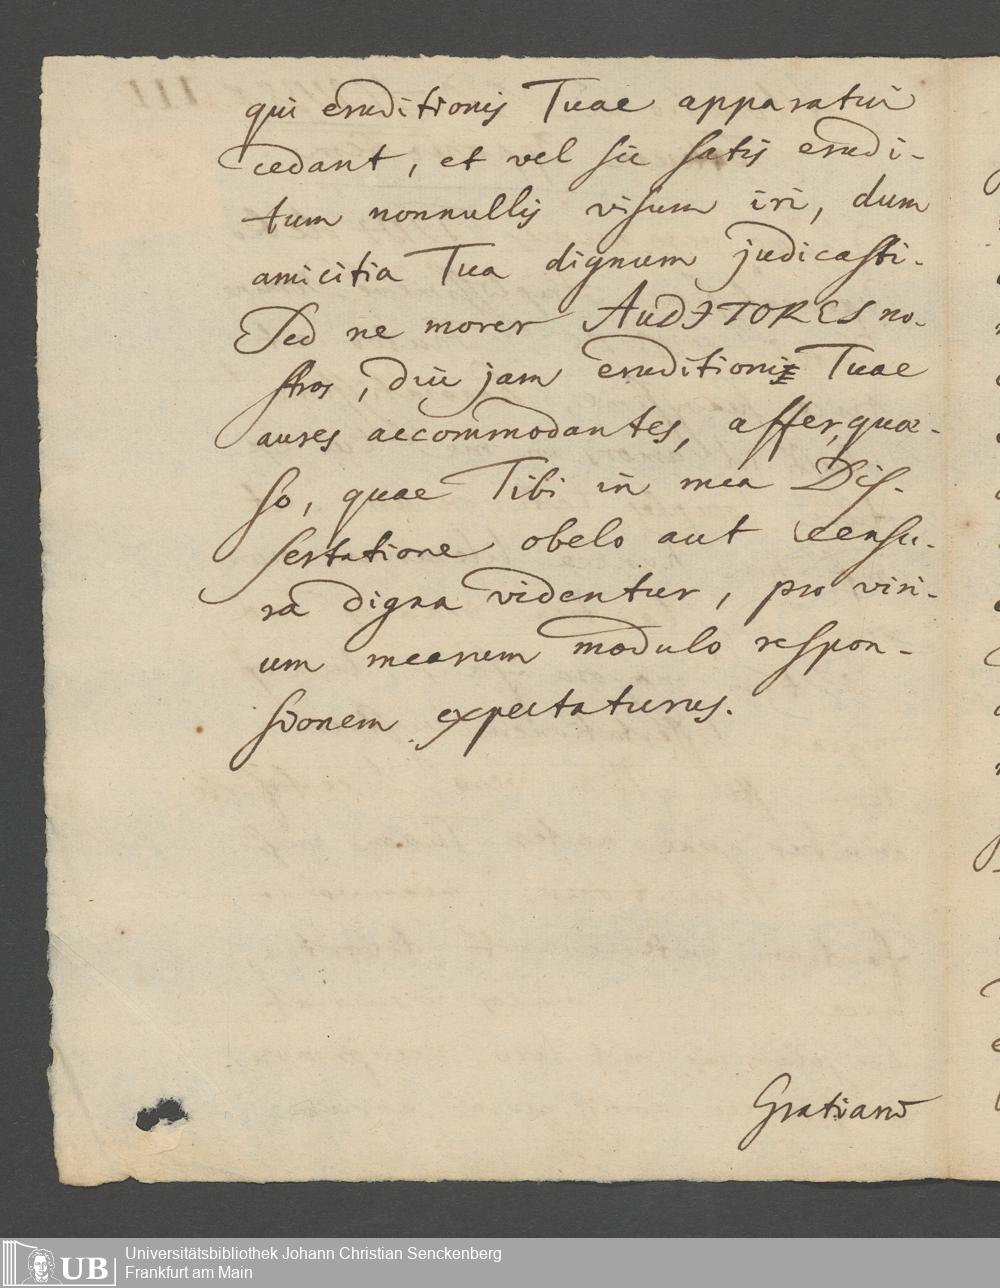 qui eruditionis Tuae apparatui
cedant, et vel sic satis erudi-
tum nonnullis visum iri, dum
amicitia Tua dignum judicasti.
Sed ne morer AUDITORES no-
stros, diu jam eruditioni Tuae
aures accommodantes, affer, quae-
so, quae Tibi in mea Dis-
sertatione obelo aut censu-
ra digna videntur, pro viri-
um mearum modulo respon-
sionem expectaturus.
Gratiarū
Universitätsbibliothek Johann Christian Senckenberg
Frankfurt am Main
UB